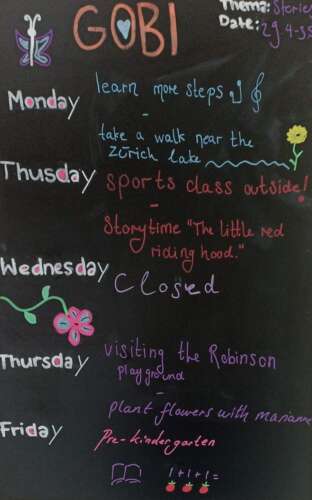 GOBI
Thema: Stories
Date: 29.4-
Monday
learn more steps
-
take a walk near the
Zürich lake
Thusday
sports class outside!
-
Storytime "The little red
riding hood."
Wednesday
Closed
Thursday
visiting the Robinson
playground
-
plant flowers with Mariame
Friday
Pre-kindergarten
1+1+1=